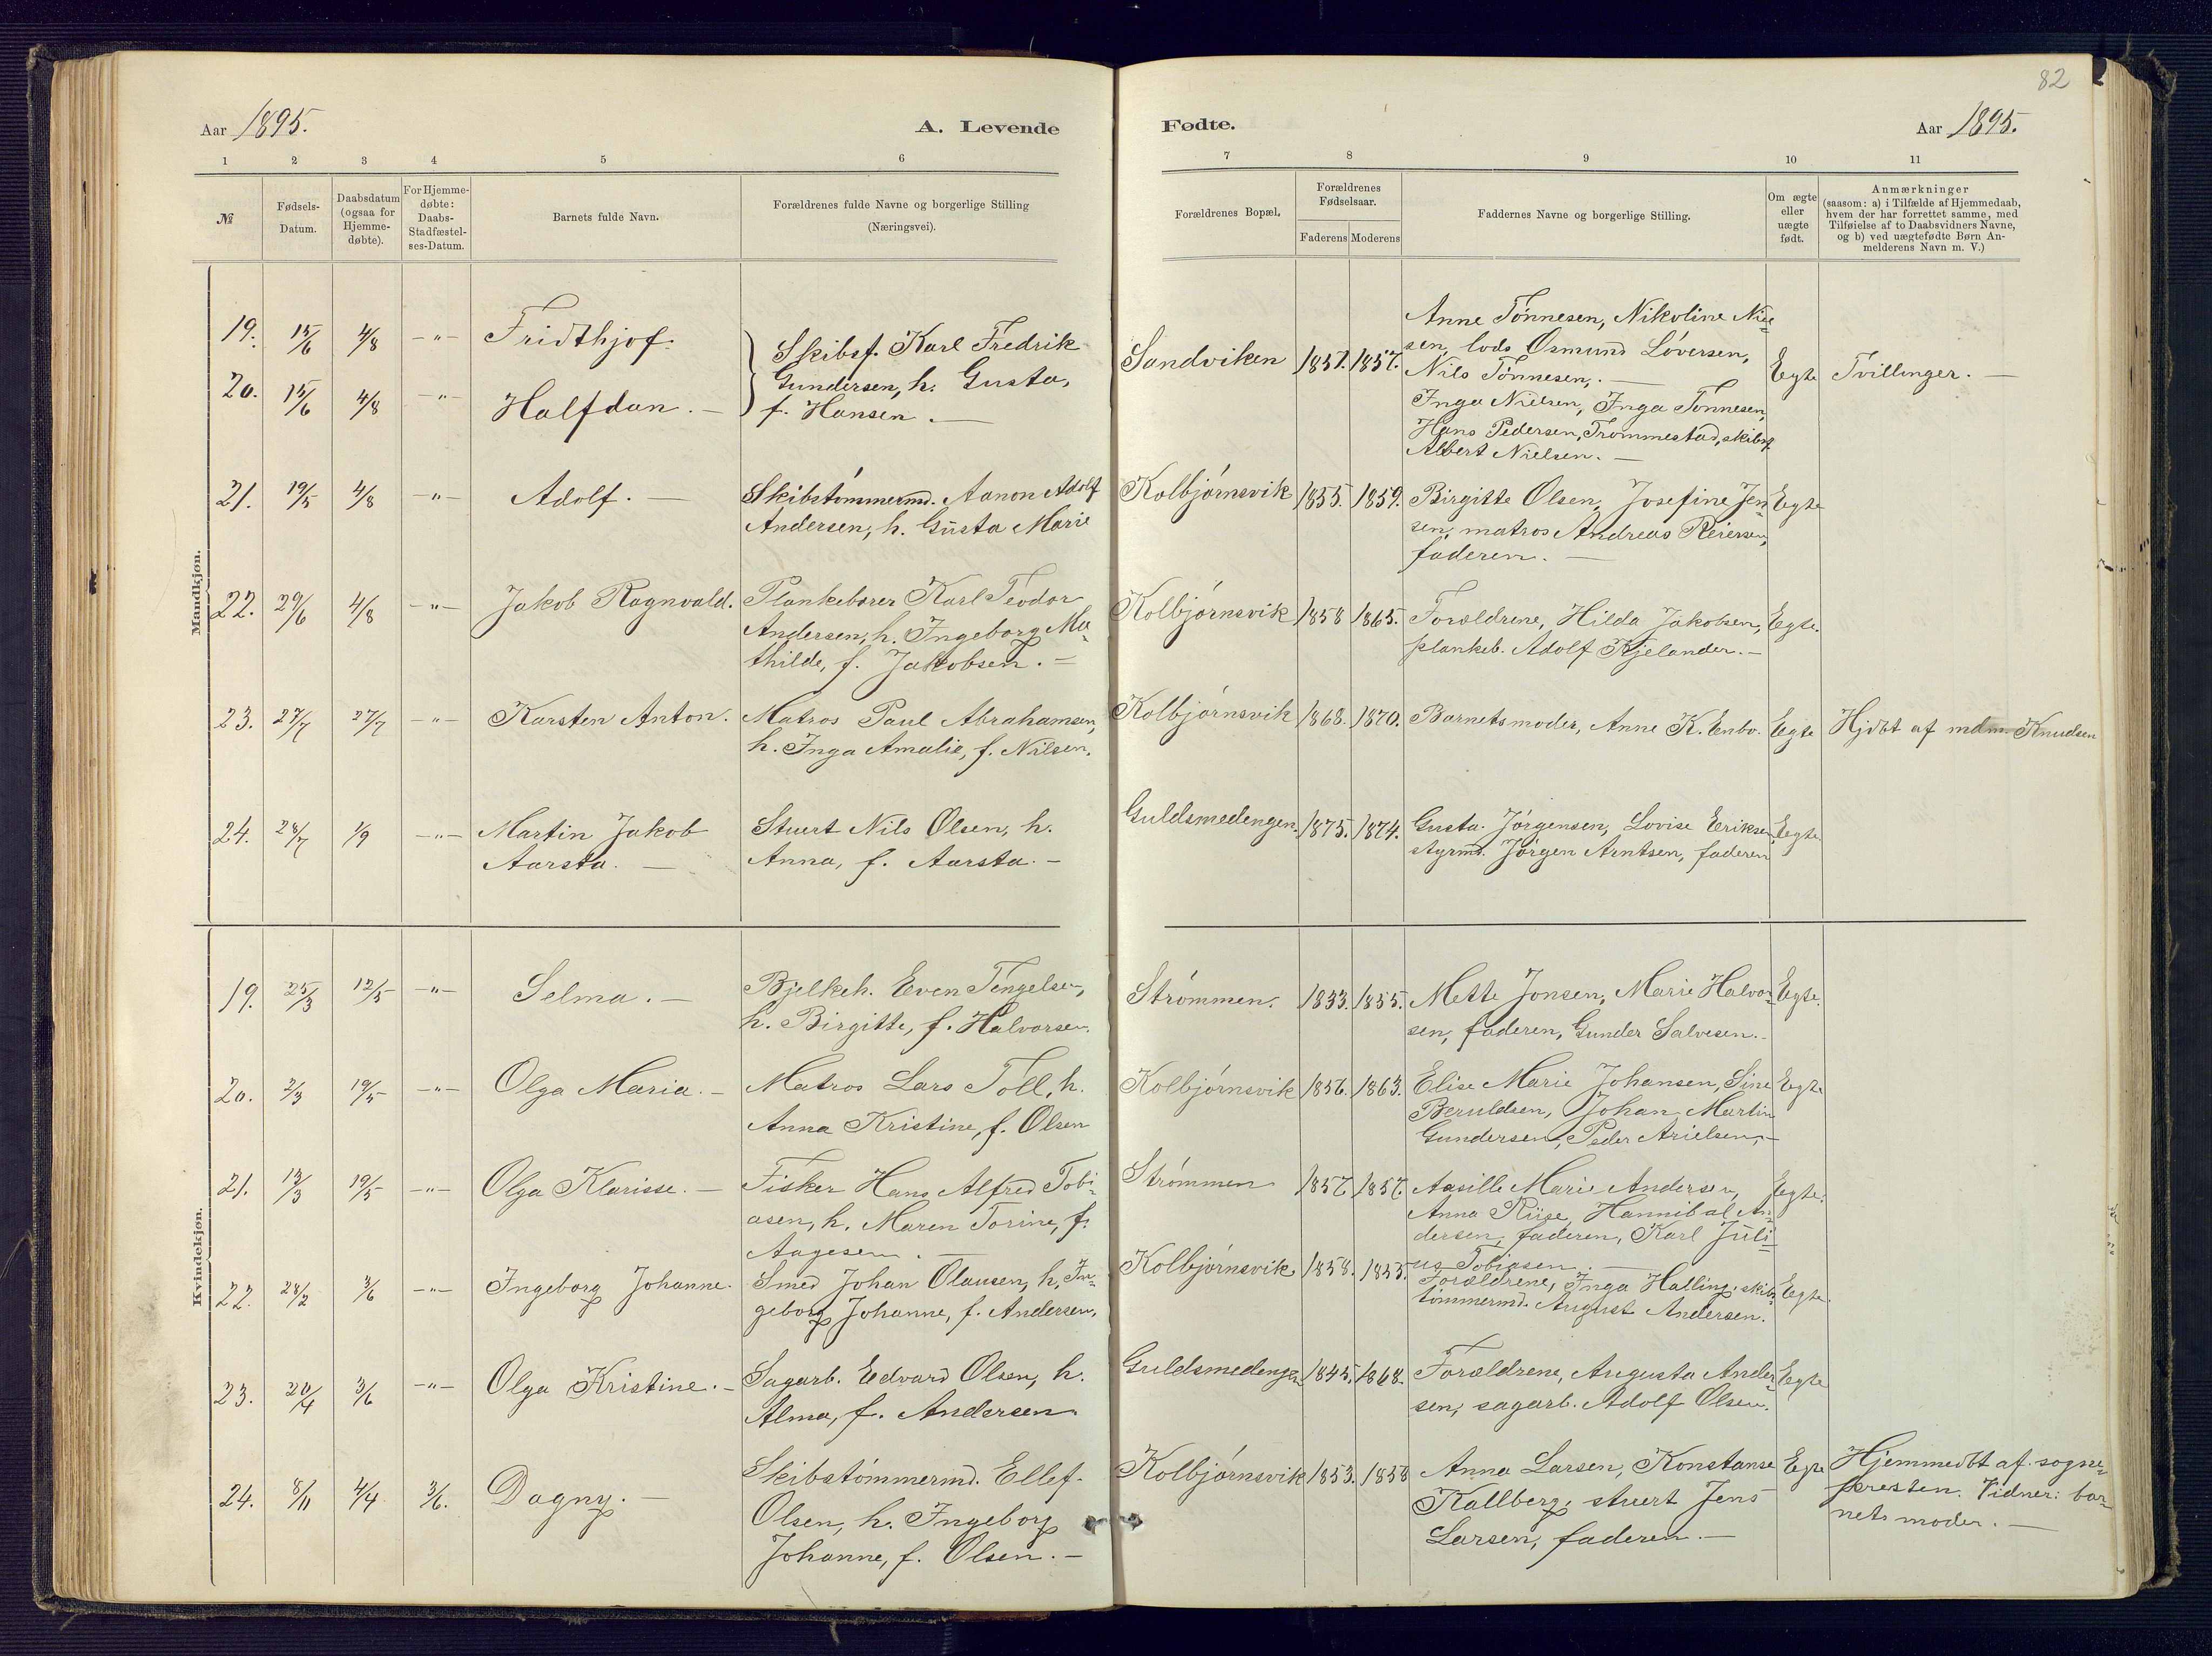 82
Aar 1895.
A. Levende
Fødte.
Aar 1895.
1 2 3 4 5 6 7 8 9 10 11
№
Fødsels-
Datum.
Daabsdatum
(ogsaa for
Hjemme-
døbte).
For Hjemme-
døbte:
Daabs-
Stadfæstel-
ses-Datum.
Barnets fulde Navn.
Forældrenes fulde Navne og borgerlige Stilling
(Næringsvei).
Forældrenes Bopæl.
Forældrenes
Fødselsaar.
Faderens Moderens
Faddernes Navne og borgerlige Stilling.
Om ægte
eller
uægte
født.
Anmærkninger
(saasom: a) i Tilfælde af Hjemmedaab,
hvem der har forrettet samme, med
Tilføielse af to Daabsvidners Navne,
og b) ved uægtefødte Børn An-
melderens Navn m. V.)
Mandkjøn.
19. 15/6 4/8 -"- Fridthjof.
20. 15/6 4/8 -"- Halfdan. -
Skibsf. Karl Fredrik
Gundersen, h. Gusta,
f. Hansen. -
Sandviken 1857. 1857.
Anne Tönnesen, Nikoline Niel
sen, lods Osmund Löversen,
Nils Tönnesen,. -
Inga Nielsen, Inga Tönnesen,
Hans Pedersen, Trommestad, skibsf.
Albert Nielsen. -
Egte Tvillinger. -
21. 19/5 4/8 -"- Adolf. -
Skibstömmermd. Aanon Adolf
Andersen, h. Gusta Marie
Kolbjørnsvik 1855. 1859.
Birgitte Olsen, Josefine Jen-
sen, matros Andreas Reiersen,
faderen. -
Egte
22. 29/6 4/8 -"- Jakob Ragnvald.
Plankebærer Karl Teodor
Andersen, h. Ingeborg Ma-
thilde, f. Jakobsen. -
Kolbjørnsvik 1858 1865.
Forældrene, Hilda Jakobsen,
plankeb. Adolf Kjelander. -
Egte.
23. 27/7 27/7 -"- Karsten Anton.
Matros Paul Abrahamsen,
h. Inga Amalie, f. Nilsen.
Kolbjørnsvik 1868. 1870.
Barnets moder, Anne K. Enbo.
Egte Hjdbt af mdm. Knudsen
24. 28/7 1/9 -"- Martin Jakob
Aarsta. -
Stuert Nils Olsen, h.
Anna, f. Aarsta. -
Guldsmedengen. 1875. 1874.
Gusta Jørgensen, Lovise Eriksen,
styrmd. Jørgen Arntsen, faderen
Egte
Kvindekjøn.
19. 25/3 12/5 -"- Selma. -
Bjelkeh. Even Tengelsen,
h. Birgitte, f. Halvorsen.
Strømmen. 1833. 1855.
Mette Jonsen, Marie Halvor-
sen, faderen, Gunder Salvesen. -
Egte.
20. 2/3 19/5 -"- Olga Maria. -
Matros Lars Toll, h.
Anna Kristine, f. Olsen
Kolbjørnsvik 1856. 1863.
Elise Marie Johansen, Sine
Beruldsen, Johan Martin
Gundersen, Peder Arielsen, -
Egte
21. 13/3 19/5 -"- Olga Klarisse. -
Fisker Hans Alfred Tobi-
asen, h. Maren Torine, f.
Aagesen. -
Strømmen 1857 1857.
Aasille Marie Andersen,
Anna Riise, Hannibal An-
dersen, faderen, Karl Juli-
us Tobiasen. -
Egte.
22. 28/2 3/6 -"- Ingeborg Johanne.
Smed Johan Olausen, h. In-
geborg Johanne, f. Andersen.
Kolbjørnsvik 1858. 1855.
Forældrene, Inga Halling, skibs-
tömmermd. August Andersen.
Egte.
23. 20/4 3/6 -"- Olga Kristine. -
Sagarb. Edvard Olsen, h.
Alma, f. Andersen.
Guldsmedengen 1845. 1868.
Forældrene, Augusta Ander-
sen, sagarb. Adolf Olsen.
Egte
24. 8/11 4/4 3/6. Dagny. -
Skibstömmermd. Ellef
Olsen, h. Ingeborg
Johanne, f. Olsen. -
Kolbjørnsvik 1853. 1858
Anna Larsen, Konstanse
Kallberg, stuert Jens
Larsen, faderen -
Egte
Hjemmedbt af sogne-
presten. Vidner: bar-
nets moder. -